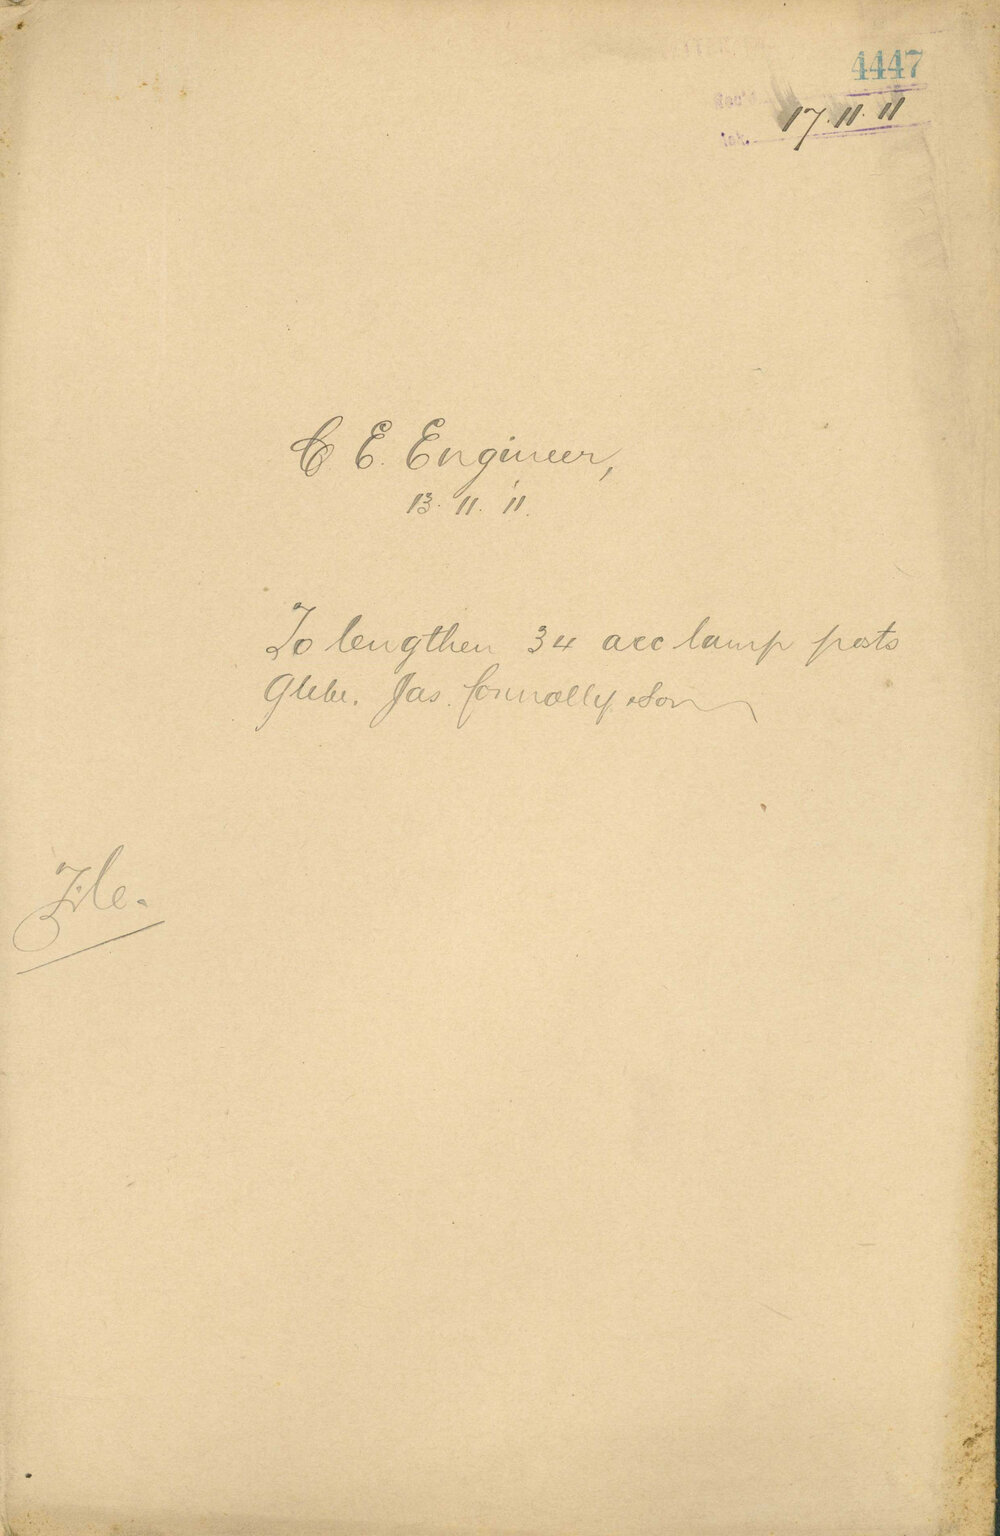 4447
Rec'd
17.11.11
C E. Engineer,
13.11.11.
To lengthen 34 arc lamp posts
Glebe. Jas. Connolly & Son
File.